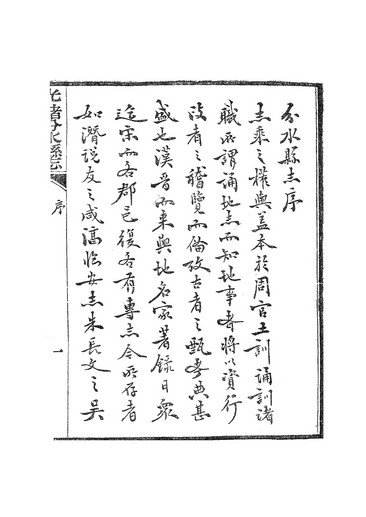 分水縣志序
志乘之權輿蓋本於周官土訓誦訓諸
職所謂誦地志而知地事者將以資行
政者之稽覽而備考古者之甄考典甚
盛也漢晉而來輿地名家著錄日衆
迄宋而各郡邑復各有專志今所存者
如潛說友之咸淳臨安志朱長文之吳
光緒分水縣志
序
一